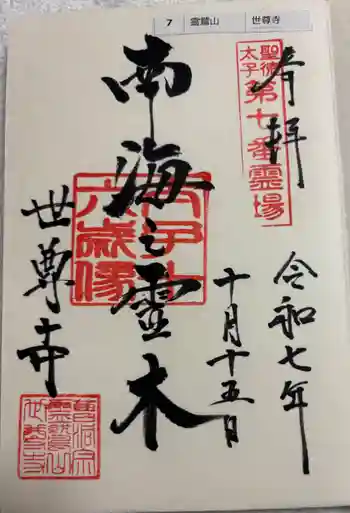 7 靈鷲山 世尊寺
奉拝
聖徳太子
第七番霊場
令和七年
十月十五日
南海之霊木
太子十六歳像
世尊寺